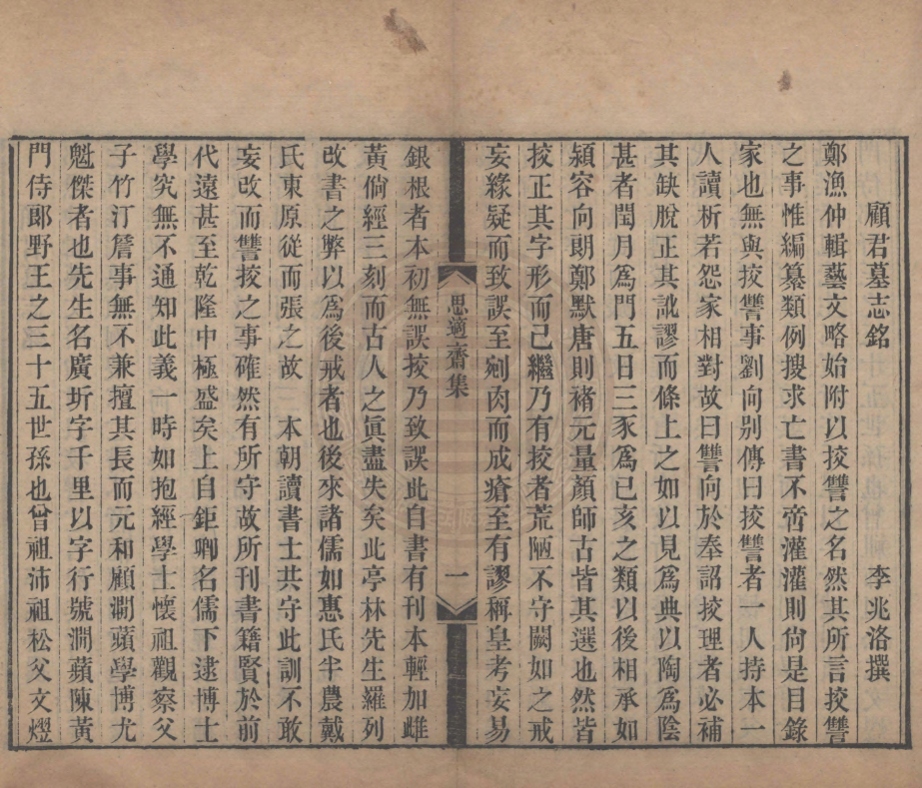 顧君墓志銘　李兆洛撰
鄭漁仲輯藝文略始附以挍讐之名然其所言挍讐
之事惟編纂類例搜求亡書不啻灌灌則尙是目錄
家也無與挍讐事劉向别傳曰挍讐者一人持本一
人讀析若怨家相對故曰讐向於奉詔挍理者必補
其缺脫正其訛謬而條上之如以見爲典以陶爲陰
甚者閏月爲門五日三豕爲已亥之類以後相承如
潁容向朗鄭默唐則褚元量顏師古皆其選也然皆
挍正其字形而已繼乃有挍者荒陋不守闕如之戒
妄緣疑而致誤至剜肉而成瘡至有謬稱皇考妄易
思適齋集
一
銀根者本初無誤挍乃致誤此自書有刊本輕加雌
黃倘經三刻而古人之眞盡失矣此亭林先生羅列
改書之弊以爲後戒者也後來諸儒如惠氏半農戴
氏東原從而張之故　本朝讀書士共守此訓不敢
妄改而讐挍之事確然有所守故所刊書籍賢於前
代遠甚至乾隆中極盛矣上自鉅卿名儒下逮博士
學究無不通知此義一時如抱經學士懷祖觀察父
子竹汀詹事無不兼擅其長而元和顧澗薲學博尤
魁傑者也先生名廣圻字千里以字行號澗薲陳黃
門侍郎野王之三十五世孫也曾祖沛祖松父文熠